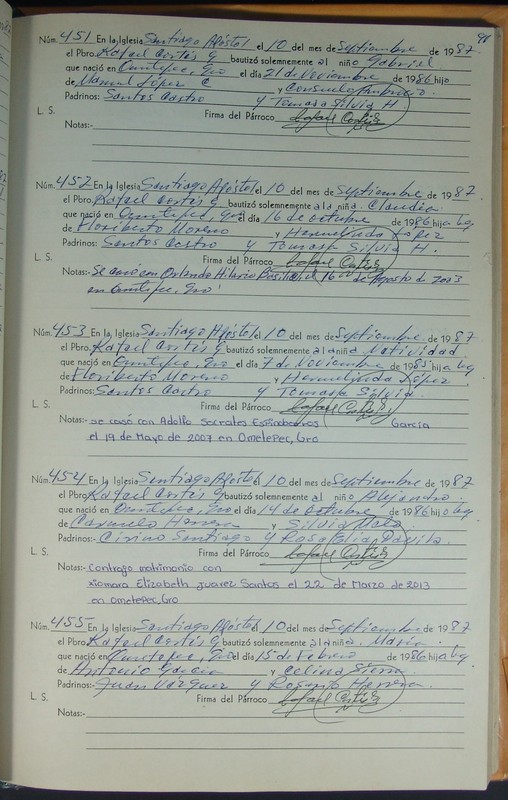 98
Núm. 451 En la Iglesia Santiago Apóstol el 10 del mes de Septiembre de 1987.
el Pbro. Rafael Cortés G bautizó solemnemente al niño Gabriel
que nació en Ometepec, Gro el día 21 de Noviembre de 1986 hijo
de Manuel López C y Consuelo Ambrocio.
Padrinos: Santos Castro y Tomasa Silvia H
L. S. Firma del Párroco Rafael Cortés G
Notas:
Núm. 452 En la Iglesia Santiago Apóstol el 10 del mes de Septiembre de 1987
el Pbro. Rafael Cortés G bautizó solemnemente a la niña Claudia
que nació en Ometepec, Gro el día 16 de octubre de 1986 hija Lg.
de Floriberto Moreno y Hermelinda López
Padrinos: Santos Castro y Tomasa Silvia H.
L. S. Firma del Párroco Rafael Cortés G
Notas: Se casó con Orlando Hilario el 16 de Agosto de 2003
en Ometepec, Gro
Núm. 453 En la Iglesia Santiago Apóstol el 10 del mes de Septiembre de 1987
el Pbro. Rafael Cortés G bautizó solemnemente a la niña Natividad
que nació en Ometepec, Gro el día 7 de Noviembre de 1985 hija Lg
de Floriberto Moreno y Hermelinda López
Padrinos: Santos Castro y Tomasa Silvia.
L. S. Firma del Párroco Rafael Cortés G
Notas: se casó con Adolfo Socrates García
el 19 de Mayo de 2007 en Ometepec, Gro
Núm. 454 En la Iglesia Santiago Apóstol el 10 del mes de Septiembre de 1987
el Pbro. Rafael Cortés G bautizó solemnemente al niño Alejandro.
que nació en Ometepec, Gro el día 14 de octubre de 1986 hijo Lg.
de Herrera y Silvia
Padrinos: Cirino Santiago y Rosa Elia Davila.
L. S. Firma del Párroco Rafael Cortés G
Notas: Contrajo matrimonio con
xiomara Elizabeth Juarez Santos el 22 de Marzo de 2013
en Ometepec, Gro
Núm. 455 En la Iglesia Santiago Apóstol el 10 del mes de Septiembre de 1987
el Pbro. Rafael Cortés G bautizó solemnemente a la niña María
que nació en Ometepec, Gro el día 15 de Febrero de 1986 hija Lg.
de Antonio García y Celina Sierra
Padrinos: Juan Vázquez y Rosario Herrera
L. S. Firma del Párroco Rafael Cortés G
Notas: